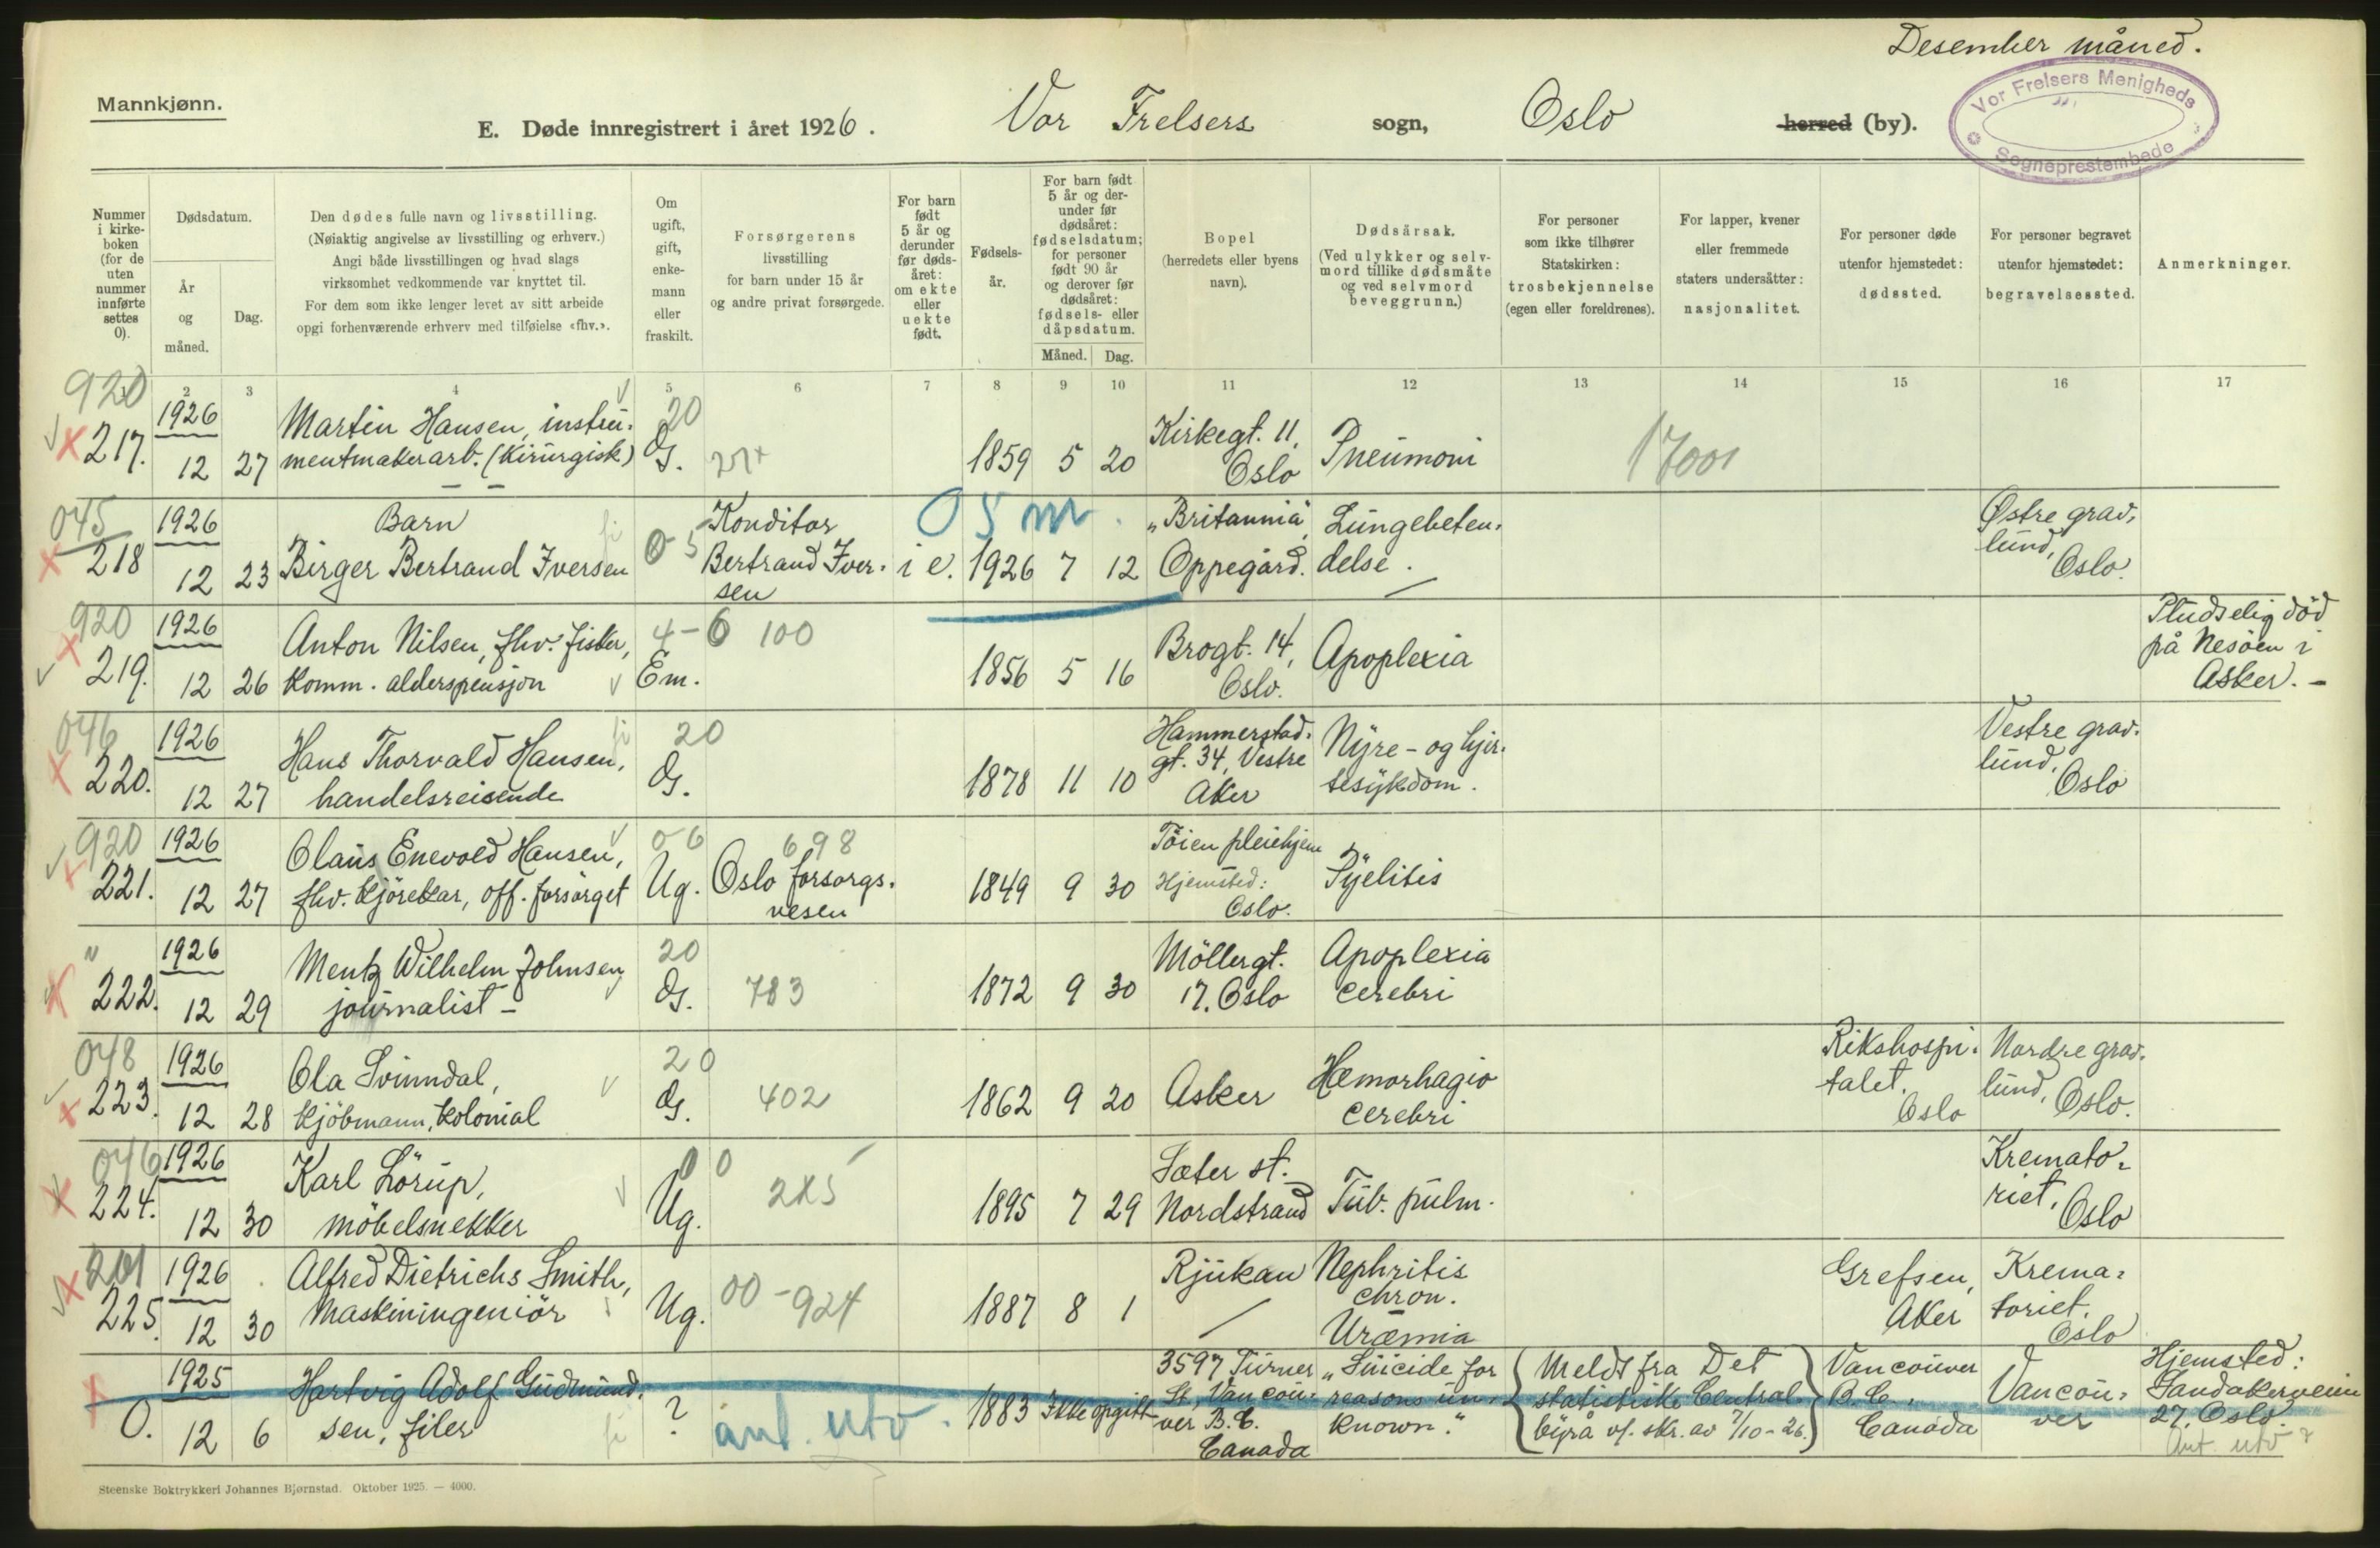 Desember måned.
Mannkjønn.
E. Døde innregistrert i året 1926. Vor Frelsers sogn, Oslo herred (by).
Vor Frelsers Menigheds
Sogneprestembede
Nummer i kirke-boken (for de uten nummer innførte settes 0).
Dødsdatum.
År og måned.
Dag.
Den dødes fulle navn og livsstilling.
(Nøiaktig angivelse av livsstilling og erhverv.)
Angi både livsstillingen og hvad slags
virksomhet vedkommende var knyttet til.
For dem som ikke lenger levet av sitt arbeide
opgi forhenværende erhverv med tilføielse «fhv.».
Om ugift, gift, enke-mann eller fraskilt.
Forsørgerens
livsstilling
for barn under 15 år
og andre privat forsørgede.
For barn født 5 år og derunder før døds-året: om ekte eller uekte født.
Fødsels-år.
For barn født 5 år og der-under før dødsåret: fødselsdatum; for personer født 90 år og derover før dødsåret: fødsels- eller dåpsdatum.
Måned. Dag.
Bopel
(herredets eller byens
navn).
Dødsårsak.
(Ved ulykker og selv-
mord tillike dødsmåte
og ved selvmord
beveggrunn.)
For personer
som ikke tilhører
Statskirken:
trosbekjennelse
(egen eller foreldrenes).
For lapper, kvener
eller fremmede
staters undersåtter:
nasjonalitet.
For personer døde
utenfor hjemstedet:
dødssted.
For personer begravet
utenfor hjemstedet:
begravelsessted.
Anmerkninger.
2 3 4 5 6 7 8 9 10 11 12 13 14 15 16 17
920
217. 1926 12 27
Martin Hansen, instru-
mentmakerarb. (Kirurgisk)
20
G. 1859 5 20
Kirkegt. 11,
Oslo
Pneumoni
1700
045
218 1926 12 23
Barn
Birger Bertrand Iversen
0 5
Konditor
Bertrand Iver-
sen
05 m
i e. 1926 7 12
"Britannia",
Oppegård.
Lungebeten-
delse.
Østre grav-
lund,
Oslo.
920
219. 1926 12 26
Anton Nilsen, fhv. fisker,
komm. alderspensjon
4-6 100
Em. 1856 5 16
Brogt. 14,
Oslo.
Apoplexia
Pludselig död
på Nesöen i
Asker. -
046
220. 1926 12 27
Hans Thorvald Hansen,
handelsreisende
20
G. 1878 11 10
Hammerstad-
gt. 34, Vestre
Aker
Nyre- og hjer-
tesykdom.
Vestre grav-
lund,
Oslo
920
221. 1926 12 27
Olaus Enevold Hansen,
fhv. kjörekar, off. forsörget
0 6
Ug.
698
Oslo forsorgs-
vesen
1849 9 30
Töien pleiehjem
Hjemsted:
Oslo.
Pyelitis
"
222. 1926 12 29
Mentz Wilhelm Johnsen,
journalist -
20
G. 783 1872 9 30
Möllergt.
17. Oslo
Apoplexia
cerebri
048
223. 1926 12 28
Ola Svinndal,
kjöbmann, kolonial
20
G. 402 1862 9 20
Asker
Hæmorhagio
cerebri
Rikshospi-
talet.
Oslo
Nordre grav-
lund, Oslo.
046
224. 1926 12 30
Karl Lörup,
möbelsnekker
0 0
Ug. 1895 7 29
Sæter st.
Nordstrand
Tub. pulm.
Kremato-
riet,
Oslo
201
225. 1926 12 30
Alfred Dietrichs Smith,
Maskiningeniör
Ug. 00-924 1887 8 1
Rjukan
Nephritis
chron.
Uræmia
Grefsen,
Aker
Krema-
toriet.
Oslo
0. 1925 12 6
Hartvig Adolf Gudmund-
sen, filer
? ant. utv. 1883 Ikke opgitt
3597 Turner
St, Vancou-
ver B.C.
Canada
"Suicide for
reasons un-
known."
Meldt fra Det
statistiske Central-
byrå vf. skr. av 7/10-26.
Vancouver
B.C.,
Canada
Vancou-
ver
Hjemsted:
Sandakerveien
27, Oslo.
Ant. utv
Steenske Boktrykkeri Johannes Bjørnstad. Oktober 1925. — 4000.